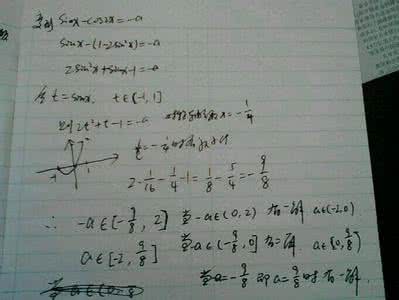 变形 sinx-cos2x=-a
sinx-(1-2sin²x)=-a
2sin²x+sinx-1=-a
令 t=sinx, t∈[-1,1]
则 2t²+t-1=-a 对称轴为x=-1/4
t=-1/4时
2·1/16-1/4-1=1/8-5/4=-9/8
∴ -a∈[-9/8, 2] 当-a∈(0,2) 有一解 a∈(-2,0)
a∈[-2, 9/8] 当-a∈(-9/8,0] 有二解 a∈[0,9/8)
当-a=-9/8 即a=9/8时 有一解.